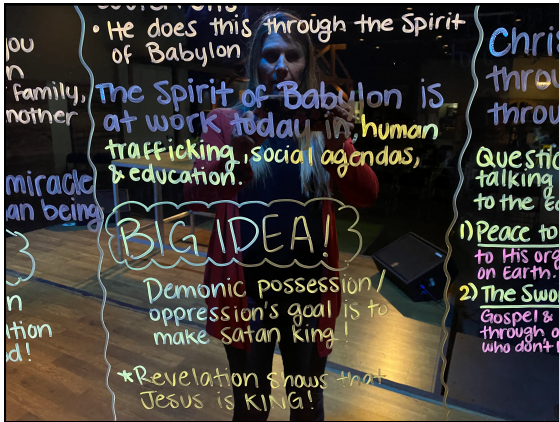 • He does this through the Spirit
of Babylon
The Spirit of Babylon is
at work today in human
trafficking, social agendas,
& education.
BIG IDEA!
Demonic possession/
oppression's goal is to
make Satan king!
*Revelation shows that
Jesus is KING!
you
n
family,
nother
miracle
an being
n
ation
d!
Chris
throu
throu
Questio
talking
to the Ea
1) Peace to
to His org
on Earth.
2) The Swor
Gospel &
through o
who don't